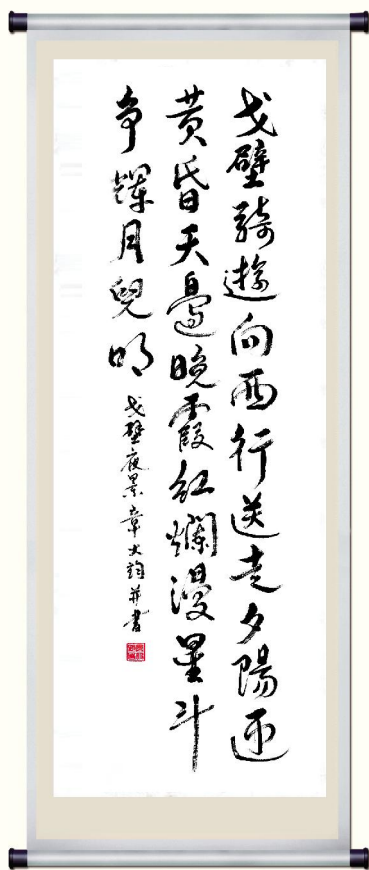 戈壁騎遊向西行送走夕陽迎
黄昏天邊晚霞紅爛漫星斗
争耀月兒明
戈壁夜景章大鈞并書